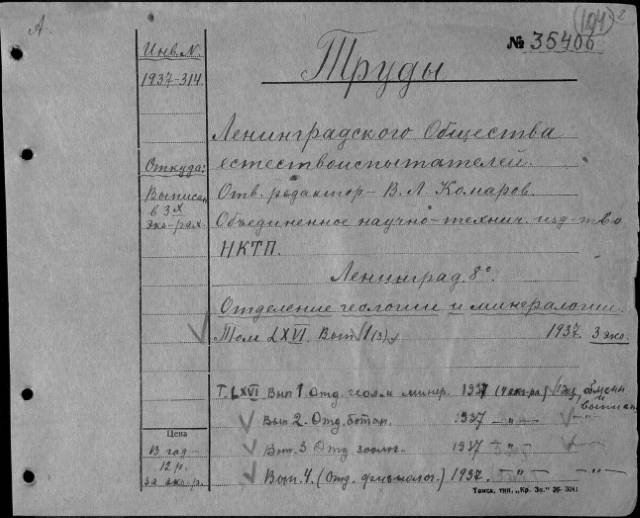 А.
194 2
№ 35406
Инв. N.
Труды
1937-314
Ленинградского Общества
естествоиспытателей.
Откуда:
Выписан
в 3х
экз-рах.
Отв. редактор - В. Л. Комаров.
Объединенное научно-технич. изд-тво
НКТП.
Ленинград. 8°.
Отделение геологии и минералогии.
Том LXVI. Вып. 1(3) 1937. 3 экз.
T. LXVI Вып 1. Отд. геол и минер. 1937 (4 экз-ра) обмен
и
выписан
Вып 2. Отд. ботан. 1937 -"-
Вып. 3 Отд зоолог. 1937 -"-
Вып. 4. (Отд. физиолог.) 1937. -"- -"-
Цена
В год
12 р.
за экз-р.
Томск, тип. „Кр. Зн." 36-3041